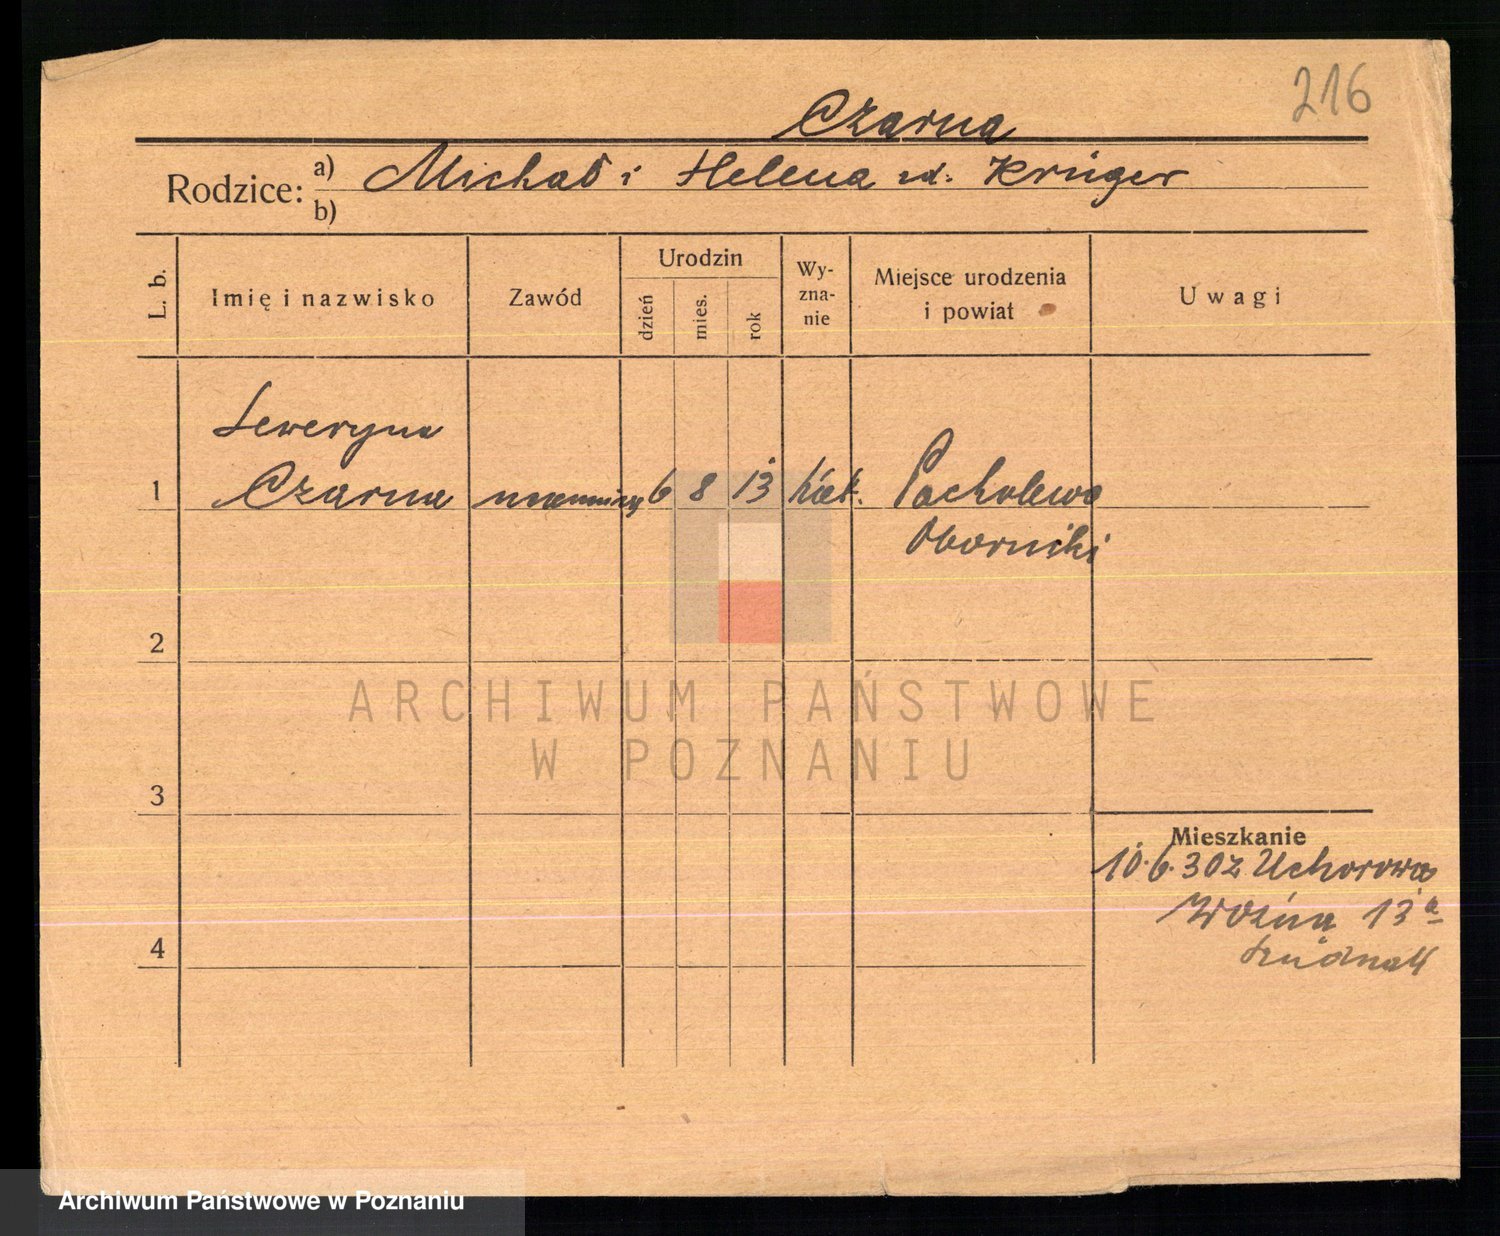 216
Czarna
Rodzice: a) Michał i Helena zd. Krüger
b)
L. b.
Imię i nazwisko
Zawód
Urodzin
dzień
mies.
rok
Wy-
zna-
nie
Miejsce urodzenia
i powiat
Uwagi
Seweryna
1 Czarna 6 8 13 kat. Pacholewo
Oborniki
2
ARCHIWUM PAŃSTWOWE
W POZNANIU
3
Mieszkanie
10.6.30 z Uchorowa
Woźna 13a
4
Archiwum Państwowe w Poznaniu